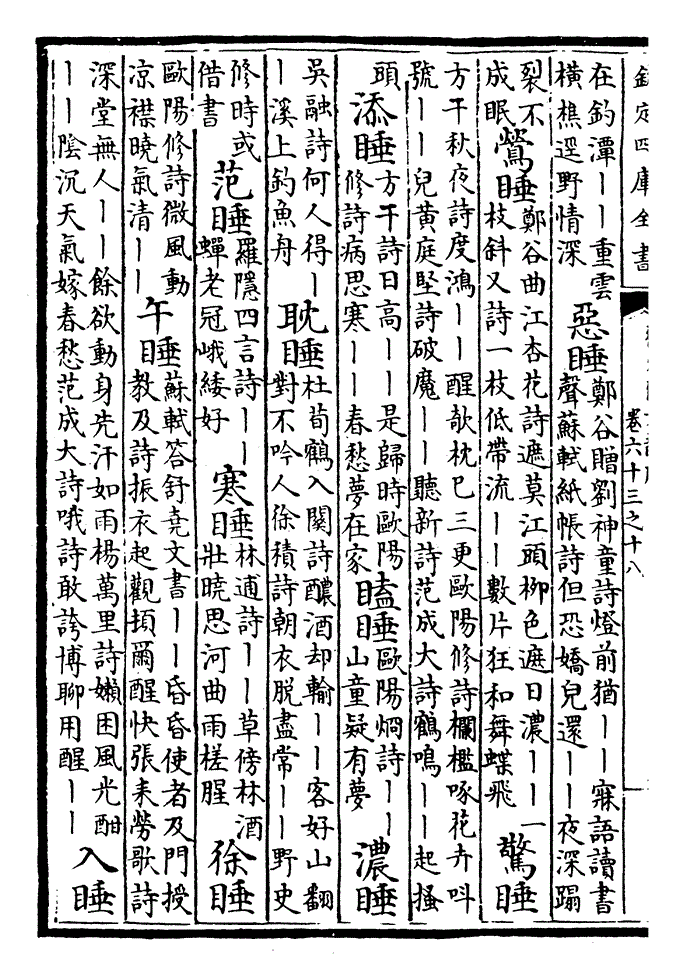 欽定四庫全書
卷六十三之十八
在釣潭丨丨重雲
橫樵逕野情深
惡睡
鄭谷贈劉神童詩燈前猶丨丨寐語讀書
聲蘇軾紙帳詩但恐嬌兒還丨丨夜深蹋
裂不
成眠
鶯睡
鄭谷曲江杏花詩遮莫江頭柳色遮日濃丨丨一
枝斜又詩一枝低帶流丨丨數片狂和舞蝶飛
驚睡
方干秋夜詩度鴻丨丨醒欹枕已三更歐陽修詩欄檻啄花卉叫
號丨丨兒黃庭堅詩破魔丨丨聽新詩范成大詩鶴鳴丨丨起搔
頭
添睡
方干詩日高丨丨是歸時歐陽
修詩病思寒丨丨春愁夢在家
瞌睡
歐陽烱詩丨丨
山童疑有夢
濃睡
吳融詩何人得丨
丨溪上釣魚舟
耽睡
杜荀鶴入關詩醲酒却輸丨丨客好山翻
對不吟人徐積詩朝衣脫盡常丨丨野史
修時或
借書
范睡
羅隱四言詩丨丨
蟬老冠峨緌好
寒睡
林逋詩丨丨草傍林酒
壯曉思河曲雨槎腥
徐睡
歐陽修詩微風動
涼襟曉氣清丨丨
午睡
蘇軾答舒堯文書丨丨昏昏使者及門授
教及詩振衣起觀頓爾醒快張耒勞歌詩
深堂無人丨丨餘欲動身先汗如雨楊萬里詩嬾困風光酣
丨丨陰沉天氣嫁春愁范成大詩哦詩敢誇博聊用醒丨丨
入睡